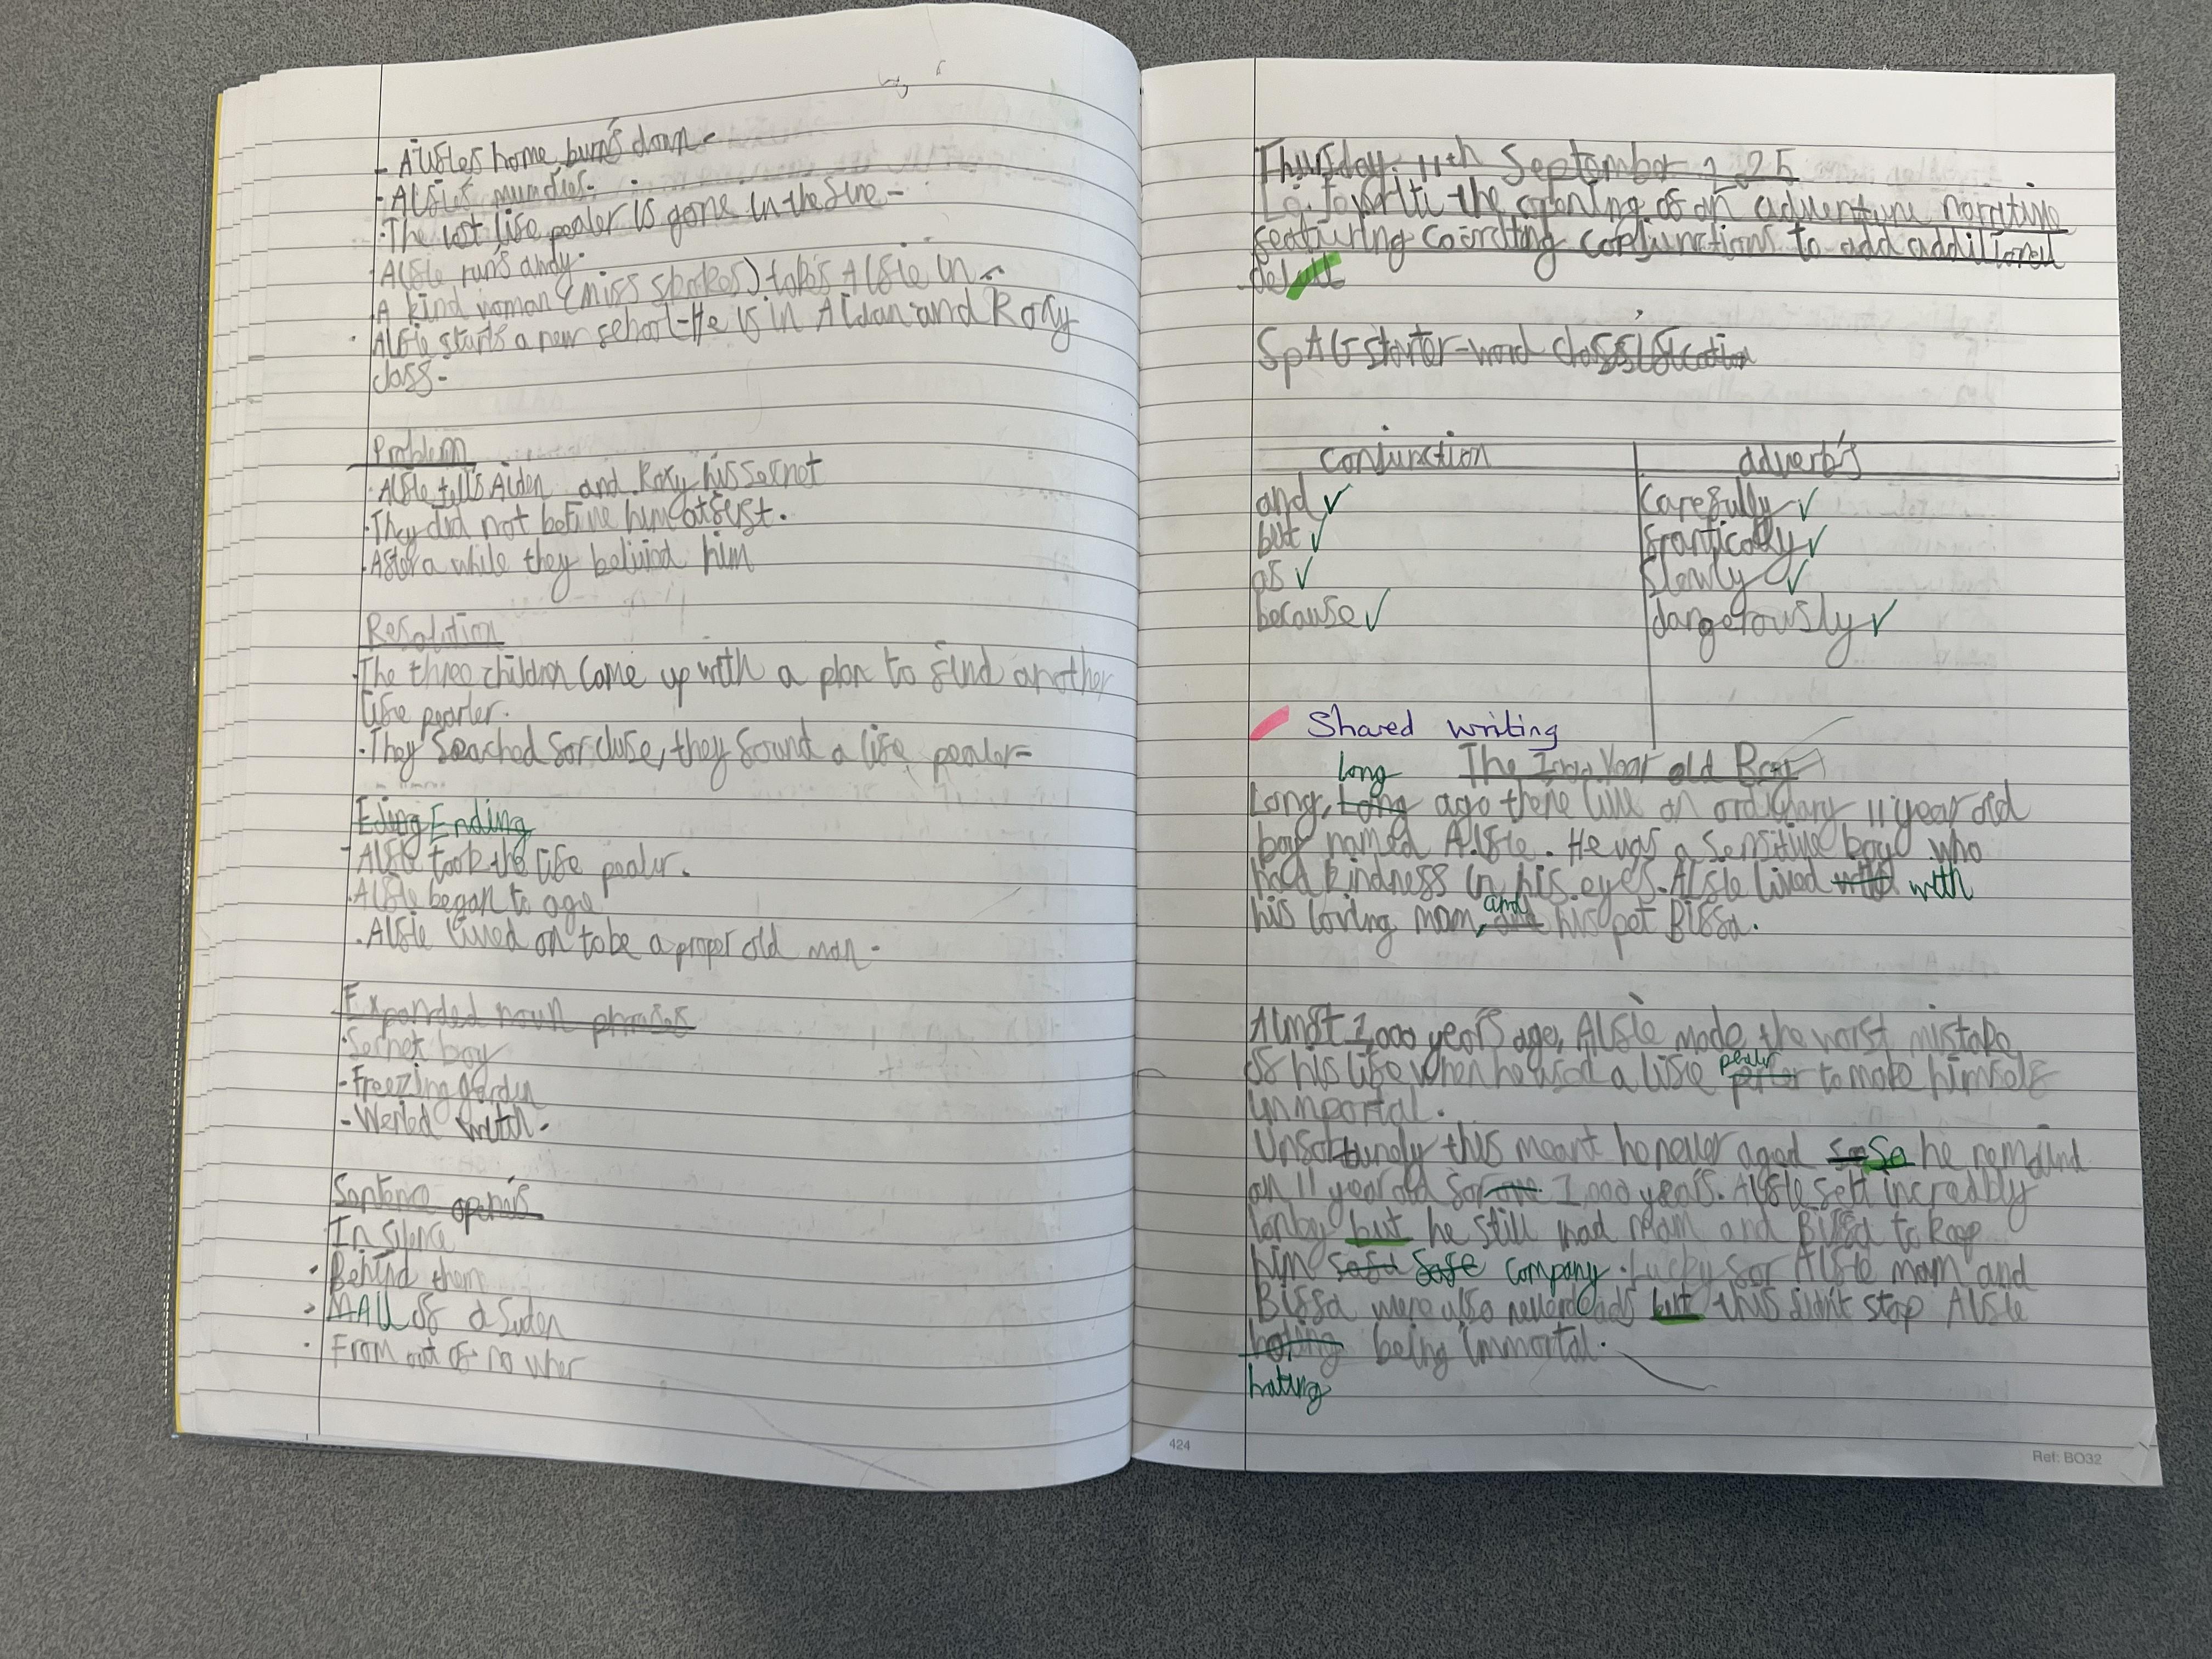 - Alfies home burns down -
- Alfies mum dies.
. The last life pealer is gone in the fire -
. Alfie runs away.
A kind woman (miss spokes) takes Alfie in -
. Alfie starts a new school - He is in Aidan and Roxy
class -
Problem
. Alfie tells Aiden and Roxy his secret
. They did not belive him at first.
. Aftera while they belivid him
Resolution
. The three children Come up with a plan to find another
life pearler.
. They seached for cluse, they found a life pealer -
Ejing Ending
- Alfie took the life pealer.
. Alfie began to age
. Alfie lived on to be a proper old man -
Expanded noun phrases
. Secret boy
- Freezing garden
-
Sentence openers
In silence
. Behind them
. All of a Suden
. From out of no wher
Thursday 11th September
the opening of an adventure narrative
conjunctions to add additional
SpAG starter - word classification
conjunction adverb's
and ✓ Carefully ✓
but ✓ frantically ✓
as ✓ Slowly ✓
because ✓ dangerously ✓
Shared writing
long The 1,000 Year old Boy
Long, Long ago there live an ordignary 11 year old
boy named Alfie. He was a Sensitive boy who
had kindness in his eyes. Alfie lived with with
his loving mam, and and his pet Biffa.
Almost 1,000 years ago, Alfie made the worst mistake
of his life when he used a life pealer to make himself
immportal.
this meant he never aged so So he remaind
an 11 year old for 1,000 years. Alfie felt incredbly
but he still had mam and Biffa to keep
him safe company. Lucky for Alfie mam and
Biffa were also but this didn't stop Alfie
being immortal.
hating
424
Ref: BO32